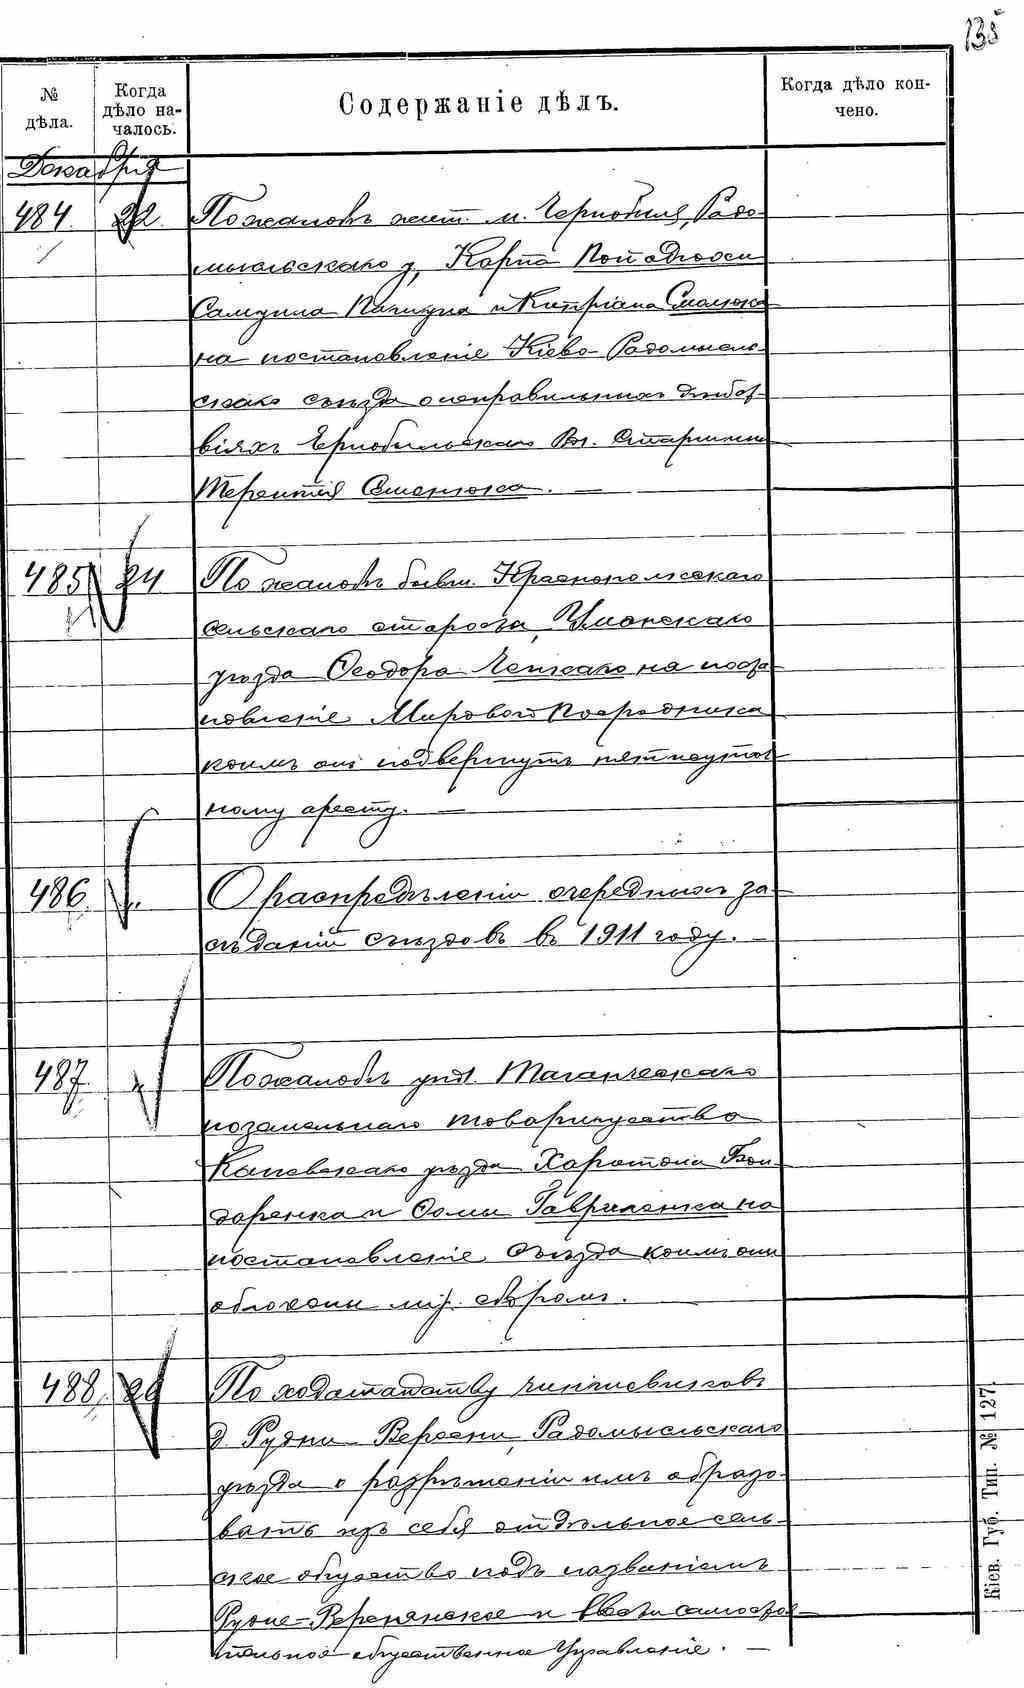 135
№ дѣла.
Когда дѣло на-
чалось.
Содержаніе дѣлъ.
Когда дѣло кон-
чено.
Декабря
484. 22. По жалобѣ жит. м. Чернобыля, Радо-
мысльскаго у, Карпа
Самуила и Кипріана Смолюка
на постановленіе Кіево-Радомысль-
скаго съѣзда о неправильныхъ дѣйст-
віяхъ Чернобыльскаго Вол. Старшины
Терентія Семенюка. —
485 24. По жалобѣ бывш. Краснопольскаго
сельскаго старосты, Уманскаго
уѣзда Ѳеодора на поста-
новленіе Мирового Посредника
коимъ онъ подвергнутъ пятисуточ-
ному аресту. —
486 „ О распредѣленіи очередныхъ за-
сѣданій съѣздовъ въ 1911 году. —
487 „ По жалобѣ упол. Таганчскаго
поземельнаго товарищества
Каневскаго уѣзда Харитона Бон-
даренка и Ѳомы Гавриленка на
постановленіе Съѣзда коимъ они
обложены мір. сборомъ.
488. 26 По ходатайству чиншевиковъ
д. Рудни Вересни, Радомысльскаго
уѣзда о разрѣшеніи имъ образо-
вать изъ себя отдѣльное сель-
ское общество подъ названіемъ
Рудне-Вереснянское и ввести самостоя-
тельное общественное Управленіе. —
Кіев. Губ. Тип. № 127.